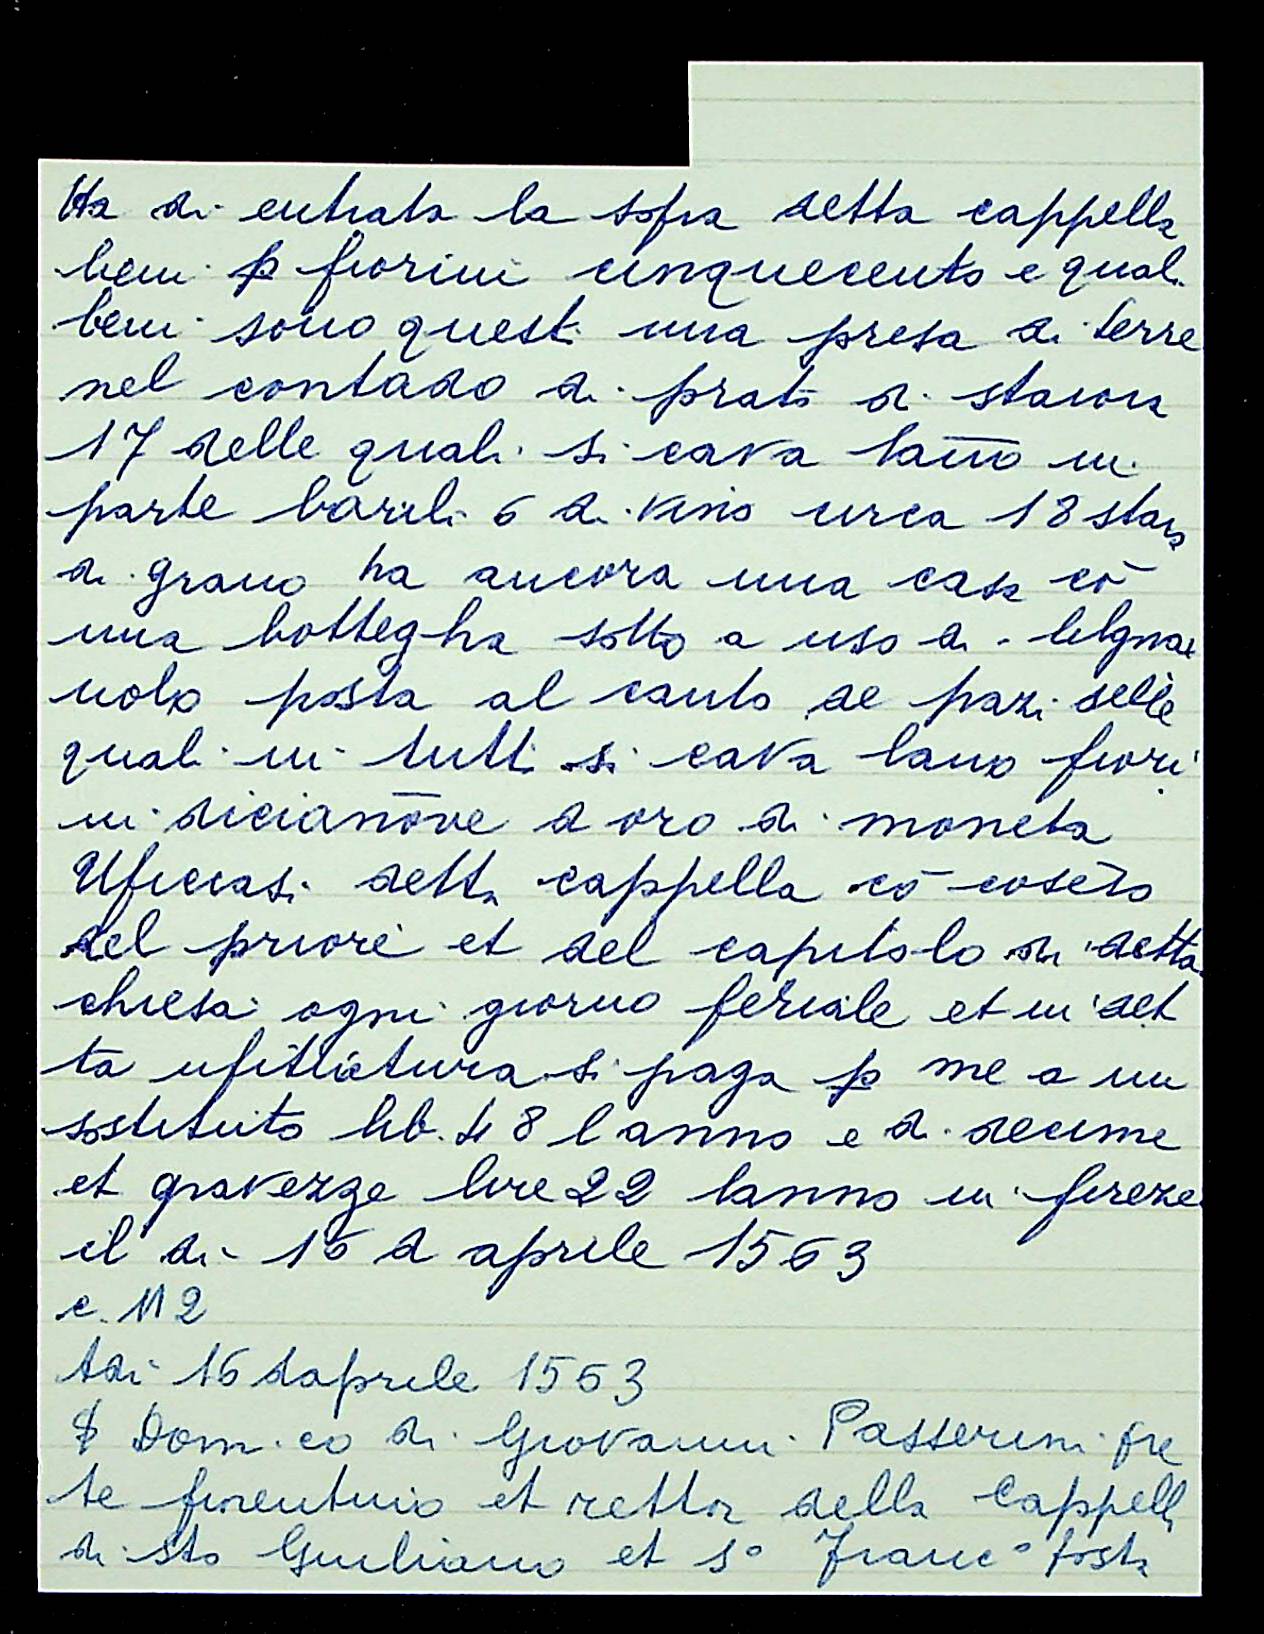 Ha di entrata la sopra detta cappella
beni p fiorini cinquecento e quali
beni sono questi una presa di terre
nel contado di prato di staiora
17 delle quali si cava lan̄o in
parte barili 6 di vino circa 18 staia
di grano ha ancora una casa cō
una bottegha sotto a uso di legna
uolo posta al canto de pazi delle
quali in tutti si cava lano fiori
ni dician̄ove d oro di moneta
Uficiasi detta cappella cō cosēto
del priore et del capitolo di detta
chiesa ogni giorno feriale et in det
ta ufitiatura si paga p me a un
sostituto lib. 48 l anno e di decime
et gravezze lire 22 lanno in fireze
il di 16 d aprile 1563
c. 112
Adi 16 daprile 1563
Dom.co di Giovanni Passerini pre
te fiorentino et rettor della Cappella
di sto Giuliano et so Franco posta